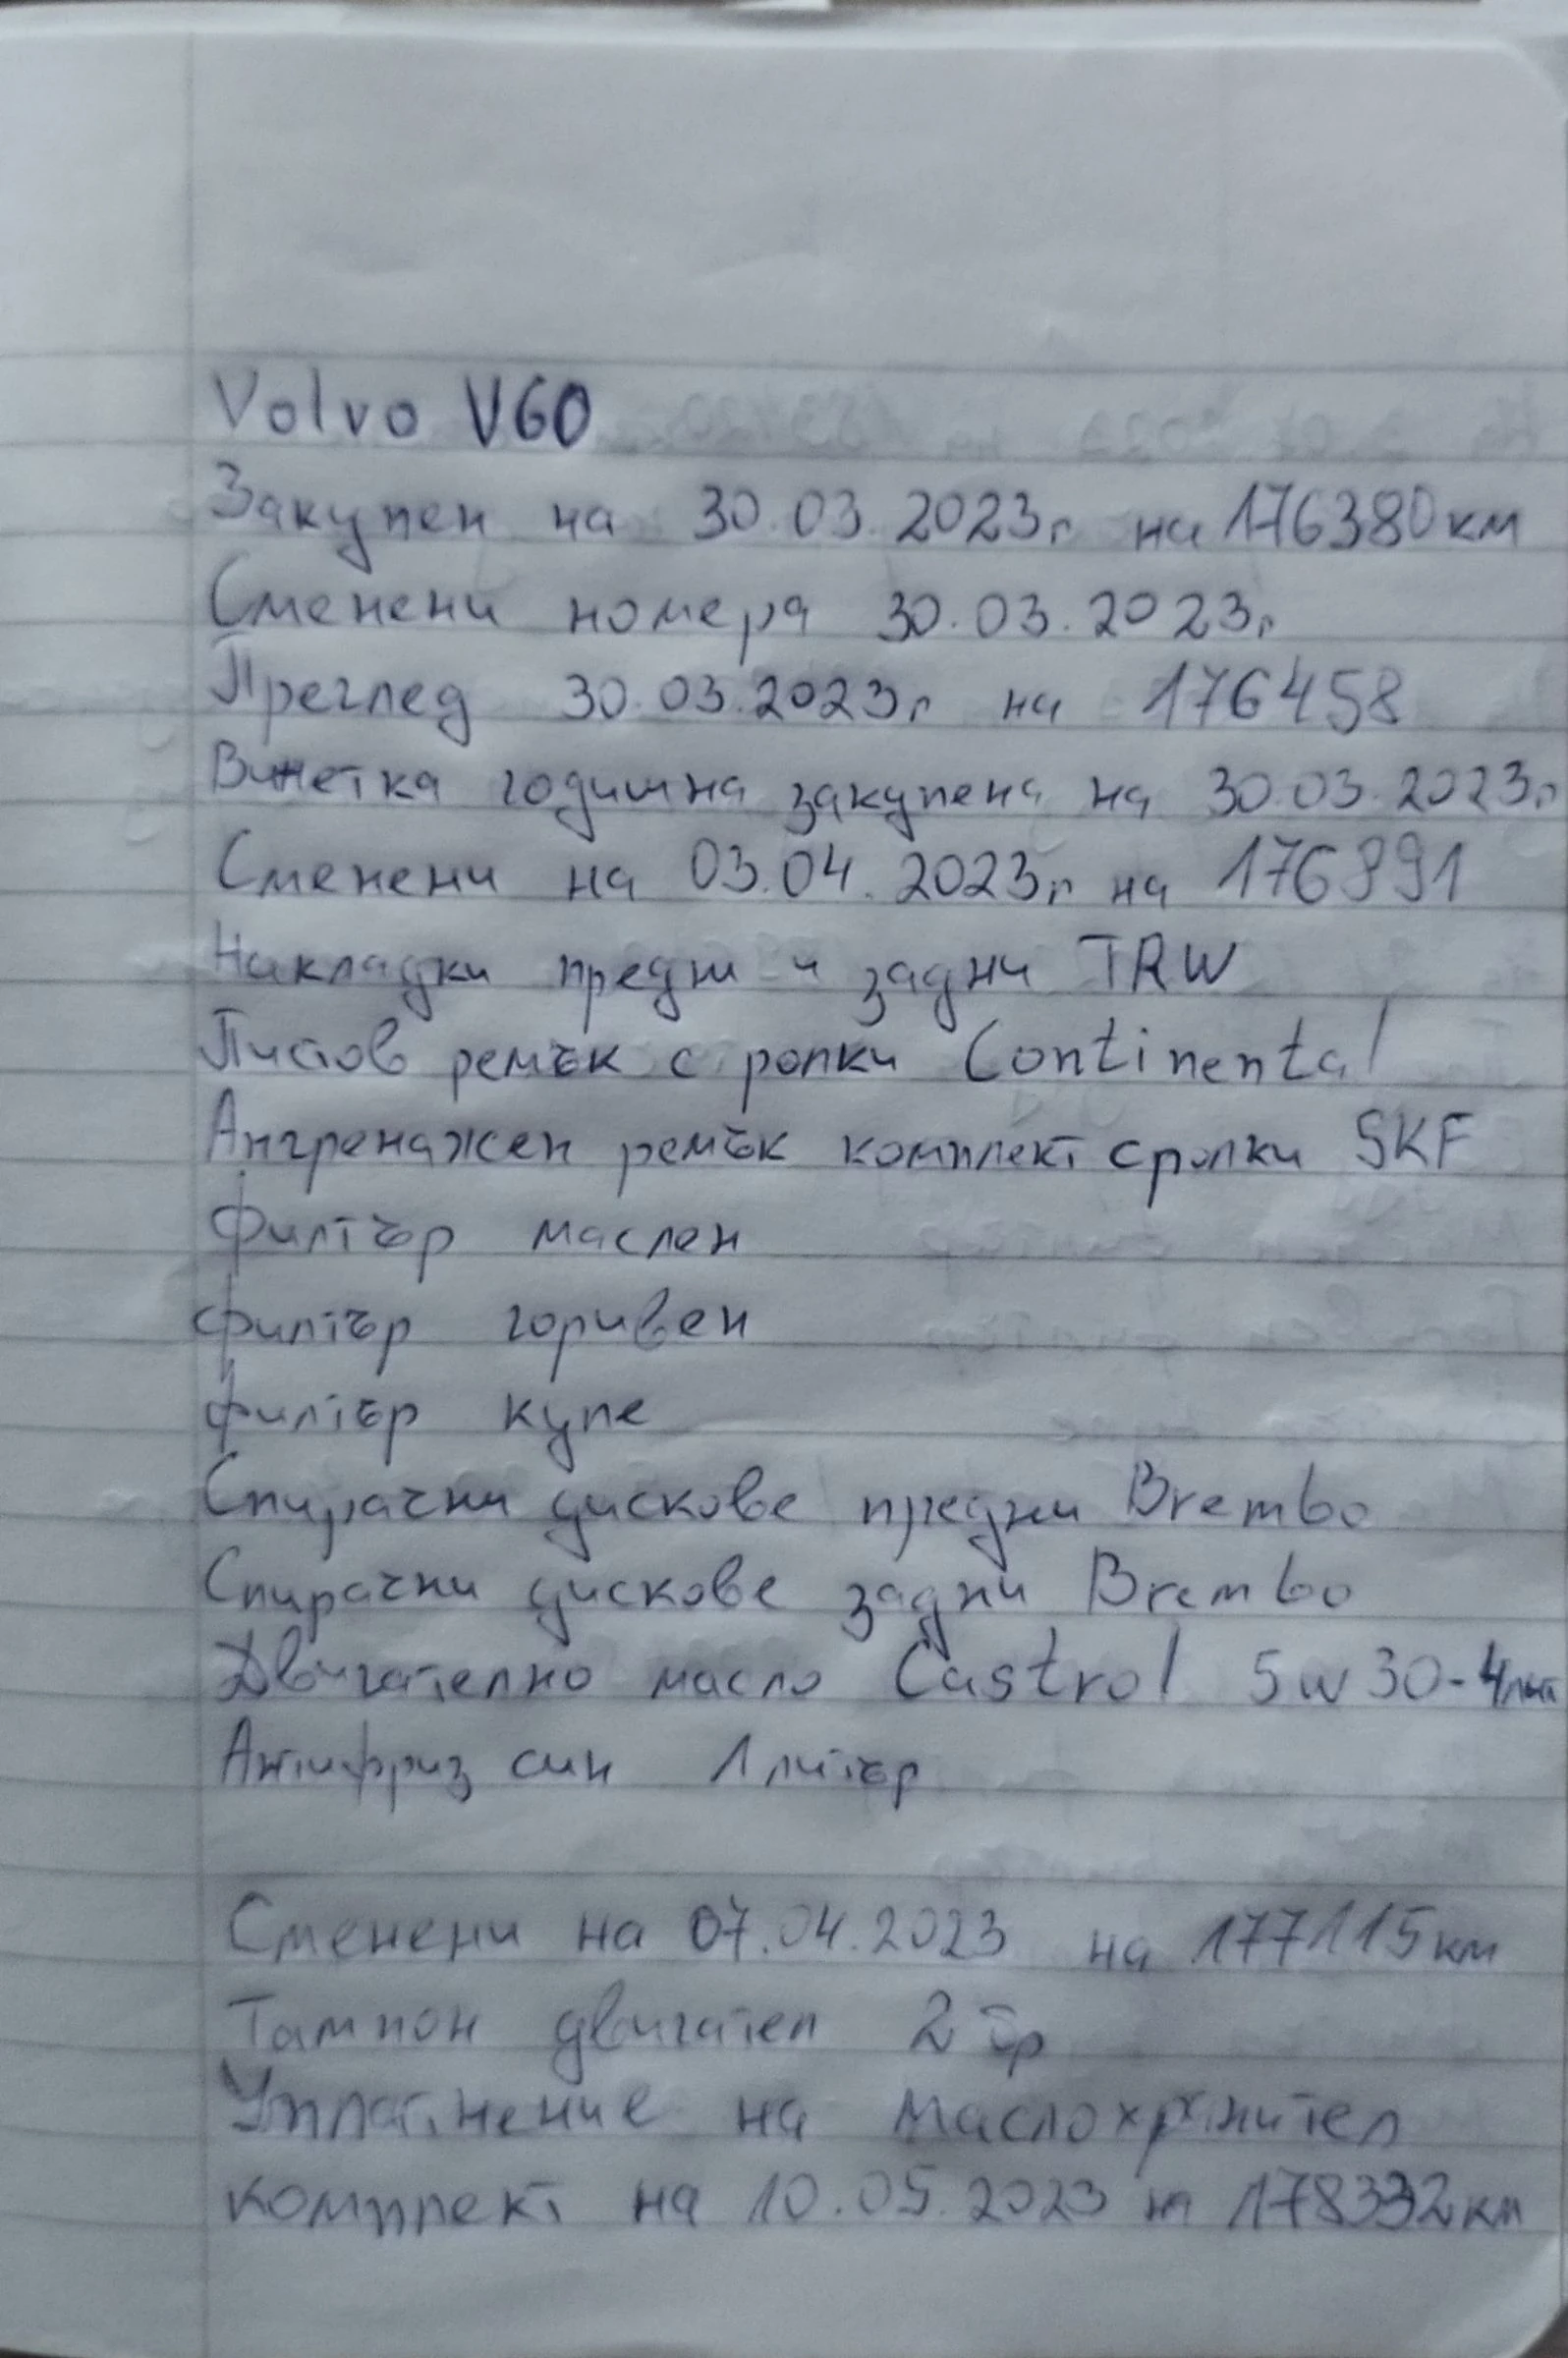 Volvo V60
Закупен на 30.03.2023г на 176380км
Сменени номера 30.03.2023г
Преглед 30.03.2023г на 176458
Винетка годишна закупена на 30.03.2023г
Сменени на 03.04.2023г на 176891
Накладки предни и задни TRW
Пистов ремък с ролки Continental
Ангренажен ремък комплект с ролки SKF
Филтър маслен
Филтър горивен
Филтър купе
Спирачни дискове предни Brembo
Спирачни дискове задни Brembo
Двигателно масло Castrol 5w30-4лит
Антифриз син 1литър
Сменени на 07.04.2023 на 177115км
Тампон двигател 2бр
Уплатнение на маслохранител
комплект на 10.05.2023 на 178332км